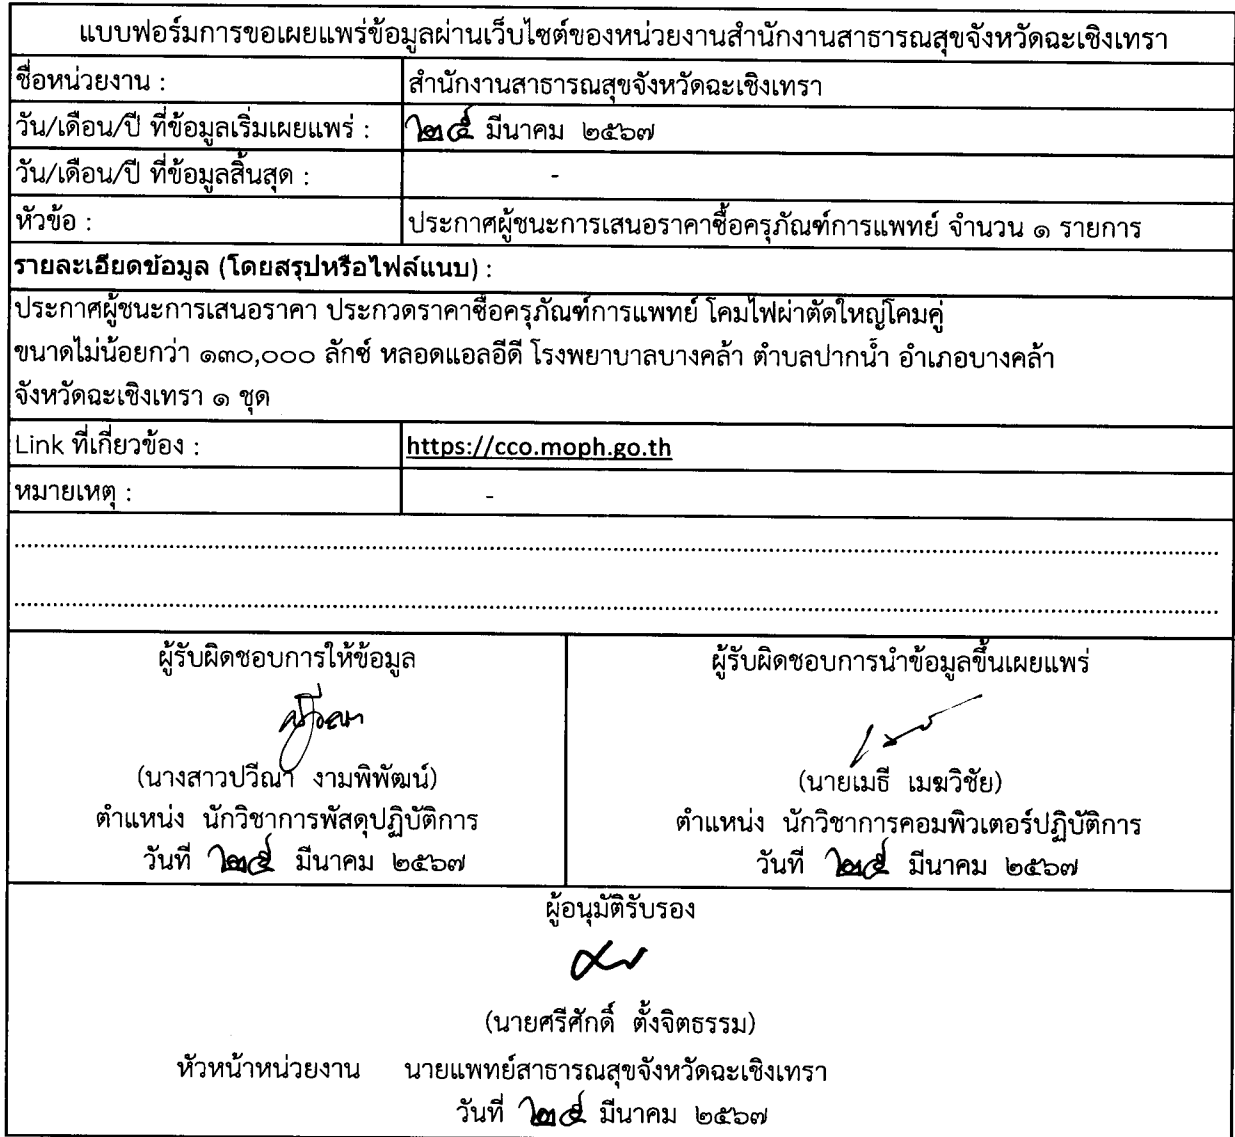 แบบฟอร์มการขอเผยแพร่ข้อมูลผ่านเว็บไซต์ของหน่วยงานสำนักงานสาธารณสุขจังหวัดฉะเชิงเทรา
ชื่อหน่วยงาน : สำนักงานสาธารณสุขจังหวัดฉะเชิงเทรา
วัน/เดือน/ปี ที่ข้อมูลเริ่มเผยแพร่ : ๒๕ มีนาคม ๒๕๖๗
วัน/เดือน/ปี ที่ข้อมูลสิ้นสุด : -
หัวข้อ : ประกาศผู้ชนะการเสนอราคาซื้อครุภัณฑ์การแพทย์ จำนวน ๑ รายการ
รายละเอียดข้อมูล (โดยสรุปหรือไฟล์แนบ) :
ประกาศผู้ชนะการเสนอราคา ประกวดราคาซื้อครุภัณฑ์การแพทย์ โคมไฟผ่าตัดใหญ่โคมคู่
ขนาดไม่น้อยกว่า ๑๓๐,๐๐๐ ลักซ์ หลอดแอลอีดี โรงพยาบาลบางคล้า ตำบลปากน้ำ อำเภอบางคล้า
จังหวัดฉะเชิงเทรา ๑ ชุด
Link ที่เกี่ยวข้อง : https://cco.moph.go.th
หมายเหตุ : -
ผู้รับผิดชอบการให้ข้อมูล
(นางสาวปวีณา งามพิพัฒน์)
ตำแหน่ง นักวิชาการพัสดุปฏิบัติการ
วันที่ ๒๕ มีนาคม ๒๕๖๗
ผู้รับผิดชอบการนำข้อมูลขึ้นเผยแพร่
(นายเมธี เมฆวิชัย)
ตำแหน่ง นักวิชาการคอมพิวเตอร์ปฏิบัติการ
วันที่ ๒๕ มีนาคม ๒๕๖๗
ผู้อนุมัติรับรอง
(นายศรีศักดิ์ ตั้งจิตธรรม)
หัวหน้าหน่วยงาน นายแพทย์สาธารณสุขจังหวัดฉะเชิงเทรา
วันที่ ๒๕ มีนาคม ๒๕๖๗